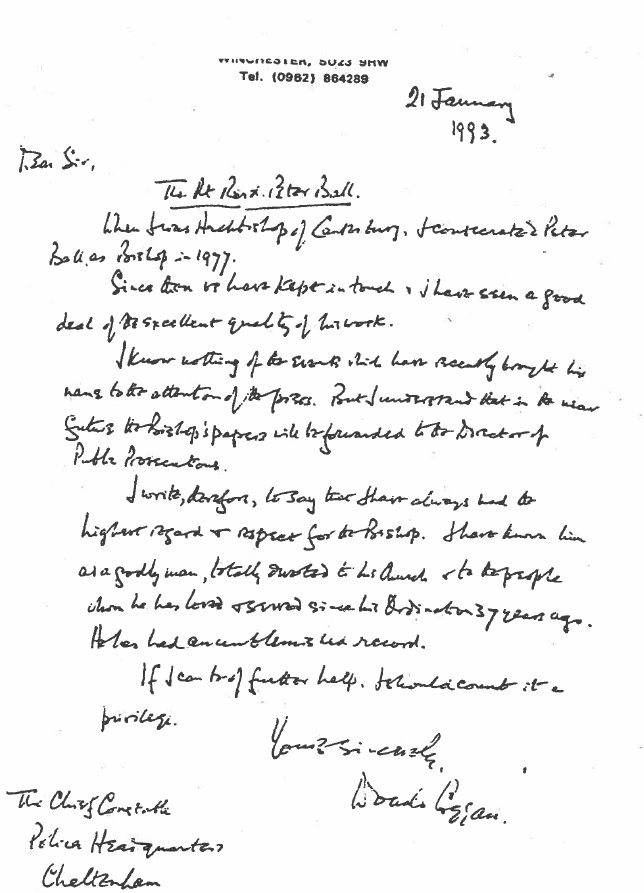 WINCHESTER, SO23 9HW
Tel. (0962) 864289
21 January
1993.
Dear Sir,
The Rt Revd. Peter Ball.
When I was Archbishop of Canterbury, I consecrated Peter
Ball, as Bishop in 1977.
Since then we have kept in touch & I have seen a good
deal of the excellent quality of his work.
I know nothing of the events which have recently brought his
name to the attention of the press. But I understand that in the near
future the Bishop's papers will be forwarded to the Director of
Public Prosecutions.
I write, therefore, to say that I have always had the
highest regard & respect for the Bishop. I have known him
as a godly man, totally devoted to his Church & to the people
whom he has loved & served since his Ordination 37 years ago.
He has had an unblemished record.
If I can be of further help, I should count it a
privilege.
Yours sincerely,
Donald Coggan.
The Chief Constable
Police Headquarters
Cheltenham